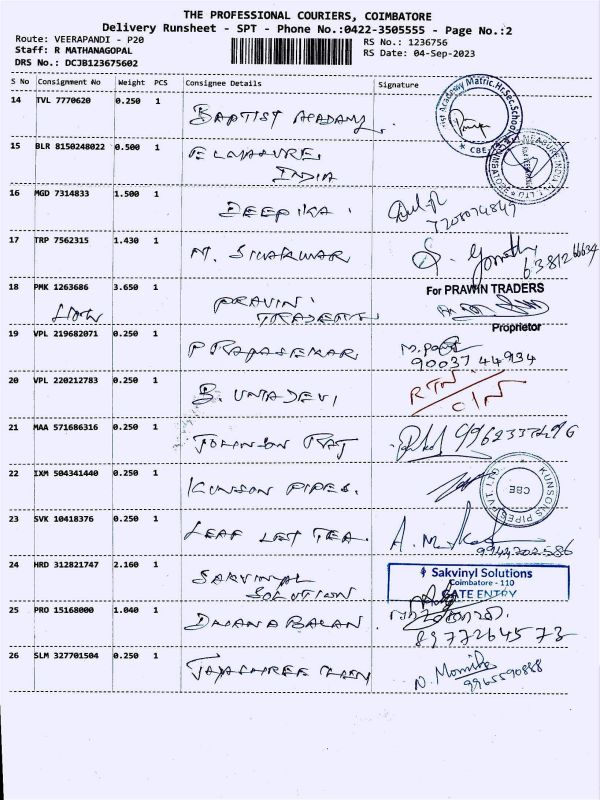 THE PROFESSIONAL COURIERS, COIMBATORE
Delivery Runsheet - SPT - Phone No.:0422-3505555 - Page No.:2
Route: VEERAPANDI - P20
RS No.: 1236756
Staff: R MATHANAGOPAL
RS Date: 04-Sep-2023
DRS No.: DCJB123675602
S No Consignment No Weight PCS Consignee Details Signature
14 TVL 7770620 0.250 1 BAPTIST ACADAMY
Academy Matric.Hr.Sec.School
* CBE *
15 BLR 8150248022 0.500 1
INDIA
16 MGD 7314833 1.500 1 DEEPIKA
17 TRP 7562315 1.430 1 M. SIVAKUMAR
18 PMK 1263686 3.650 1 PRAVIN TRADERS
For PRAVIN TRADERS
Proprietor
19 VPL 219682071 0.250 1 P RAJASEKAR
90037 44934
20 VPL 220212783 0.250 1 B. UMADEVI
RTN
21 MAA 571686316 0.250 1 JOHNSON RAJ
22 IXM 504341440 0.250 1 KUNSON PIPES.
KUNSONS PIPES PVT LTD
CBE
23 SVK 10418376 0.250 1 LEAF LET TEA
9944202586
24 HRD 312821747 2.160 1 SAKVINYL SOLUTION
Sakvinyl Solutions
Coimbatore - 110
GATE ENTRY
25 PRO 15168000 1.040 1 DHANABALAN
8977264573
26 SLM 327701504 0.250 1 JAYASHREE
9965590888